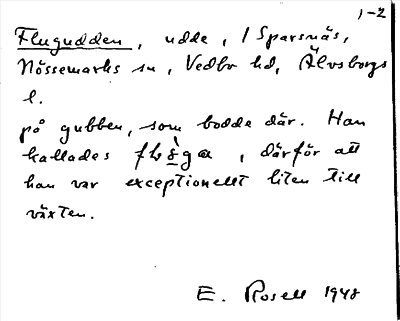 1-2
Flugudden, udde, i Sparsnäs,
Nössemarks sn, Vedbo hd, Älvsborgs
l.
på gubben, som bodde där. Han
kallades , därför att
han var exceptionellt liten till
växten.
E. Rosell 1948